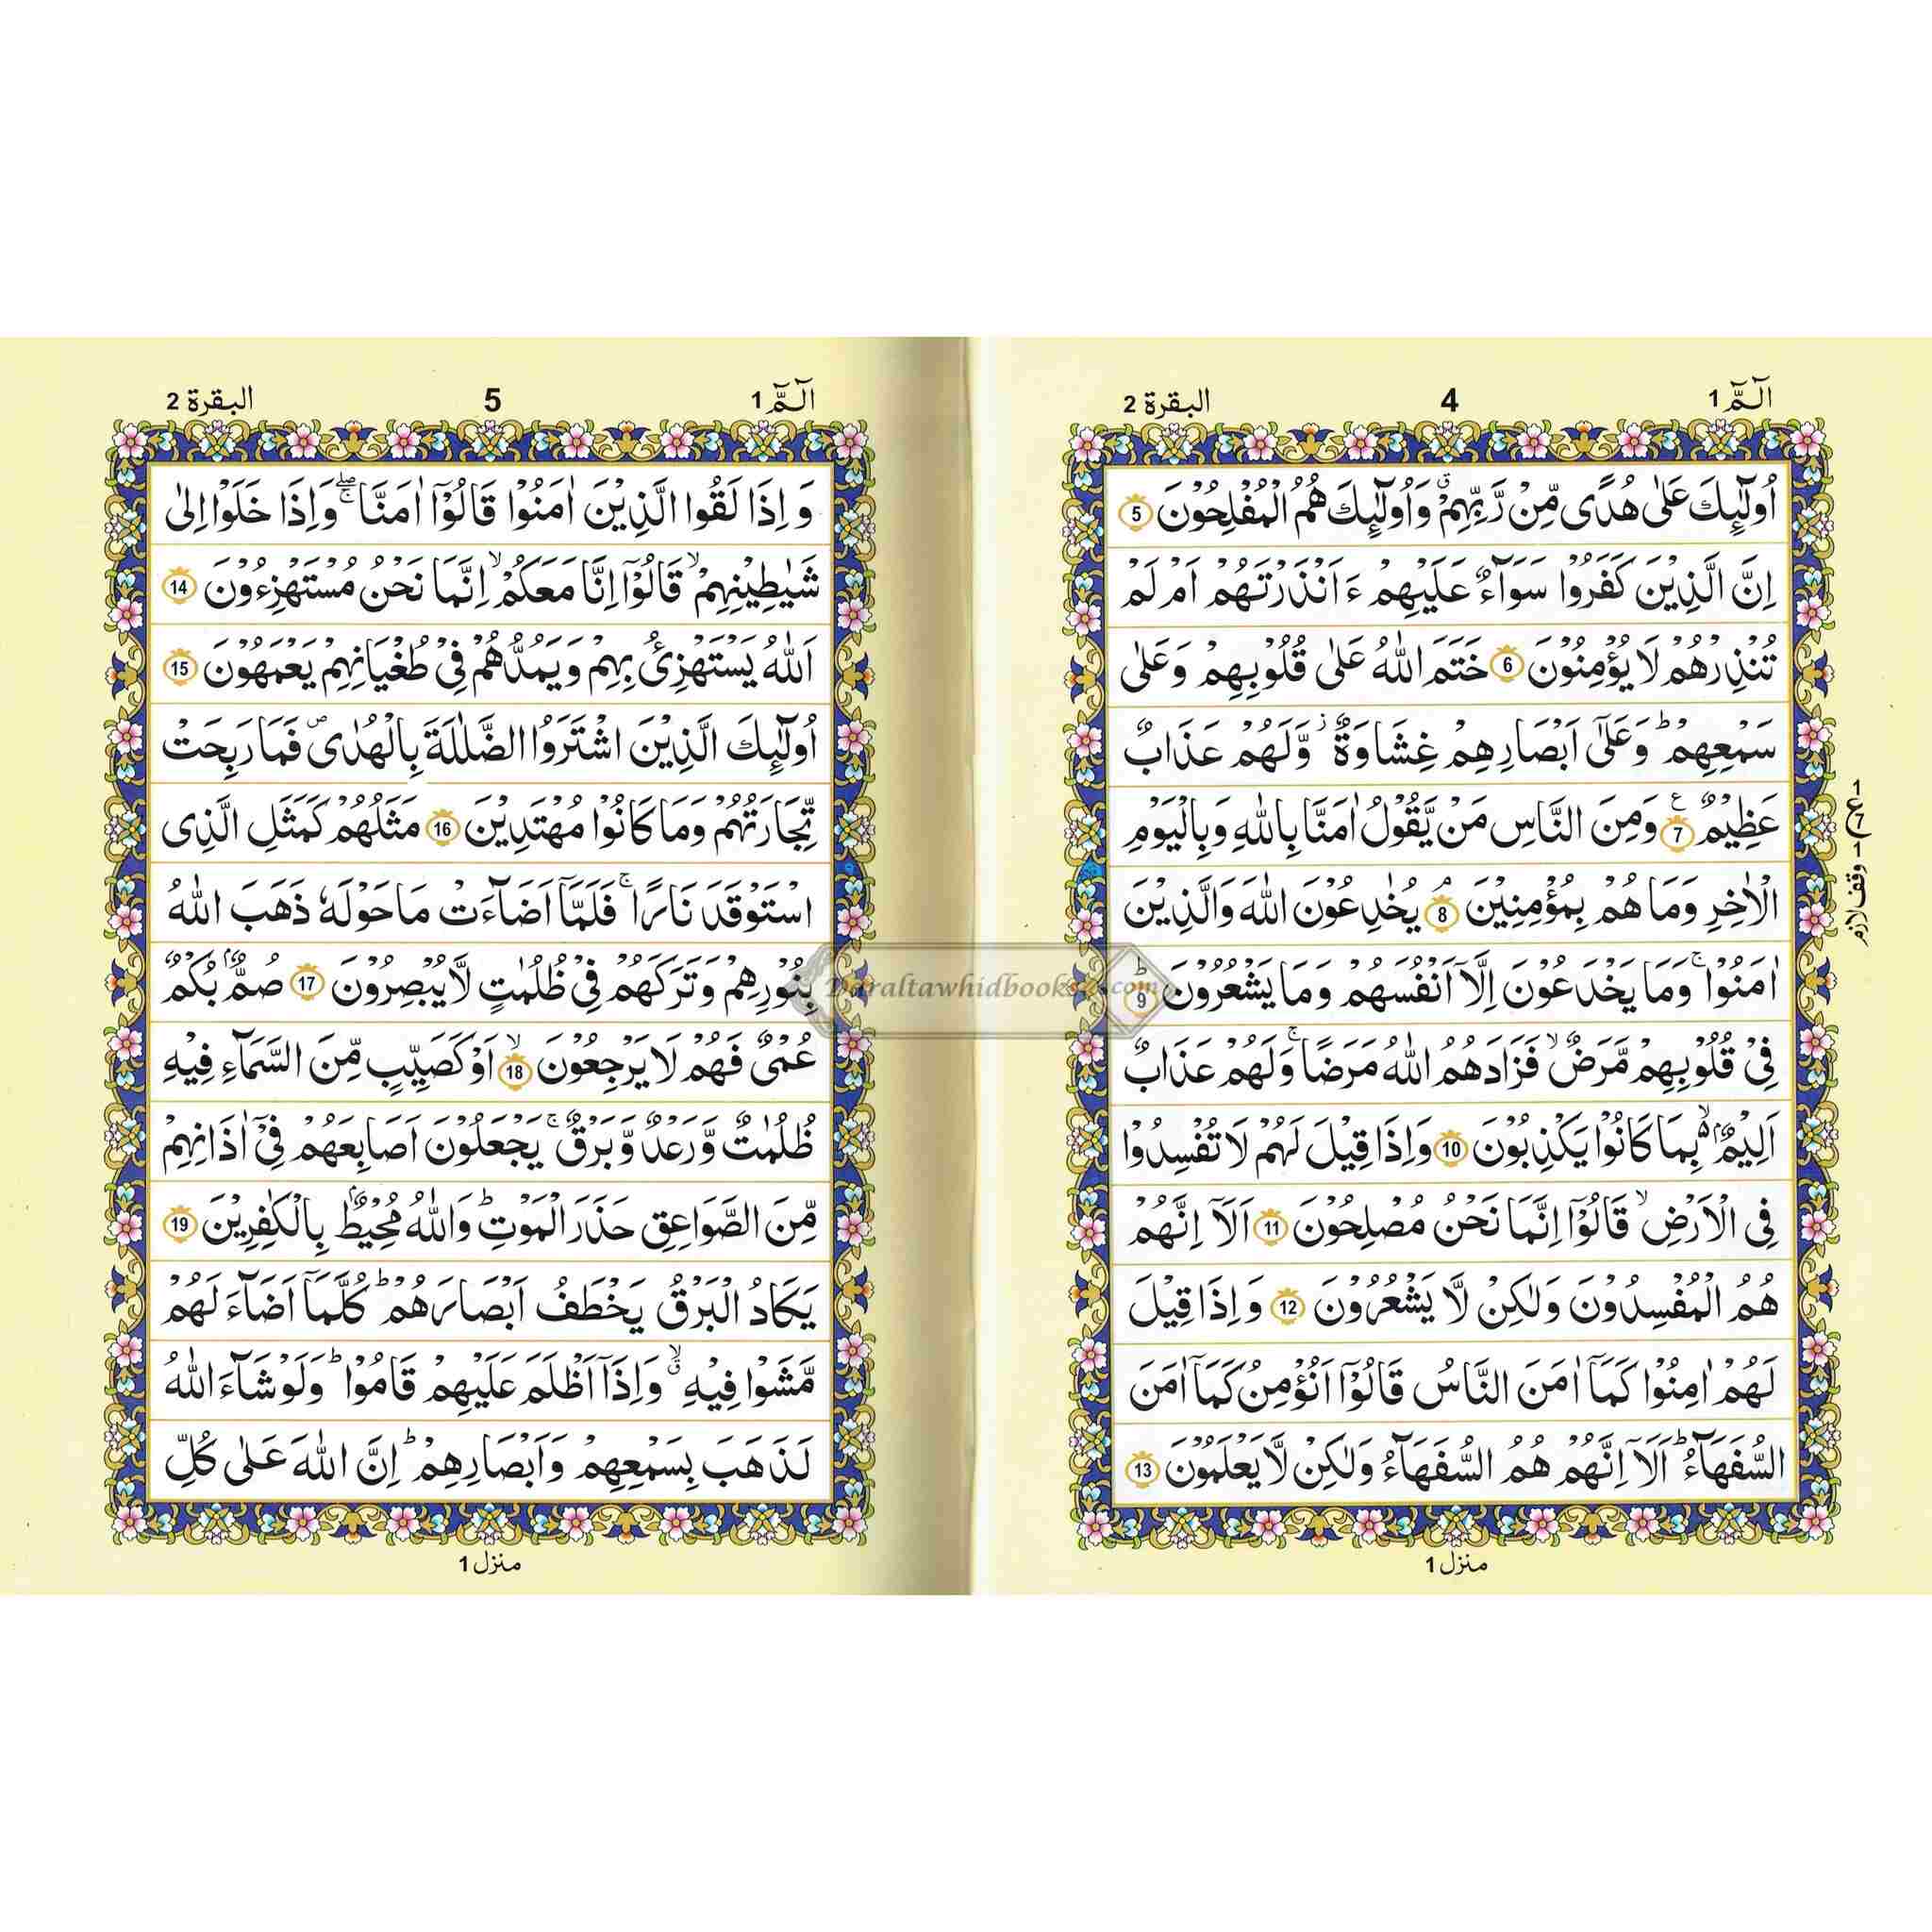 الٓمّٓ 1
4
البقرة 2
اُولٰٓئِكَ عَلٰى هُدًى مِّنْ رَّبِّهِمْ ۗ وَاُولٰٓئِكَ هُمُ الْمُفْلِحُوْنَ 5
اِنَّ الَّذِيْنَ كَفَرُوْا سَوَآءٌ عَلَيْهِمْ ءَاَنْذَرْتَهُمْ اَمْ لَمْ
تُنْذِرْهُمْ لَا يُؤْمِنُوْنَ 6 خَتَمَ اللّٰهُ عَلٰى قُلُوْبِهِمْ وَعَلٰى
سَمْعِهِمْ ؕ وَعَلٰٓى اَبْصَارِهِمْ غِشَاوَةٌ ۫ وَّلَهُمْ عَذَابٌ
عَظِيْمٌ 7 وَمِنَ النَّاسِ مَنْ يَّقُوْلُ اٰمَنَّا بِاللّٰهِ وَبِالْيَوْمِ
الْاٰخِرِ وَمَا هُمْ بِمُؤْمِنِيْنَ ۘ 8 يُخٰدِعُوْنَ اللّٰهَ وَالَّذِيْنَ
اٰمَنُوْا ۚ وَمَا يَخْدَعُوْنَ اِلَّآ اَنْفُسَهُمْ وَمَا يَشْعُرُوْنَ ؕ 9
فِيْ قُلُوْبِهِمْ مَّرَضٌ ۙ فَزَادَهُمُ اللّٰهُ مَرَضًا ۚ وَلَهُمْ عَذَابٌ
اَلِيْمٌۢ ۙ بِمَا كَانُوْا يَكْذِبُوْنَ 10 وَاِذَا قِيْلَ لَهُمْ لَا تُفْسِدُوْا
فِى الْاَرْضِ ۙ قَالُوْٓا اِنَّمَا نَحْنُ مُصْلِحُوْنَ 11 اَلَآ اِنَّهُمْ
هُمُ الْمُفْسِدُوْنَ وَلٰكِنْ لَّا يَشْعُرُوْنَ 12 وَاِذَا قِيْلَ
لَهُمْ اٰمِنُوْا كَمَآ اٰمَنَ النَّاسُ قَالُوْٓا اَنُؤْمِنُ كَمَآ اٰمَنَ
السُّفَهَآءُ ؕ اَلَآ اِنَّهُمْ هُمُ السُّفَهَآءُ وَلٰكِنْ لَّا يَعْلَمُوْنَ 13
منزل 1
1 ع 7 1
وقف لازم
الٓمّٓ 1
5
البقرة 2
وَاِذَا لَقُوا الَّذِيْنَ اٰمَنُوْا قَالُوْٓا اٰمَنَّا ۚۖ وَاِذَا خَلَوْا اِلٰى
شَيٰطِيْنِهِمْ ۙ قَالُوْٓا اِنَّا مَعَكُمْ ۙ اِنَّمَا نَحْنُ مُسْتَهْزِءُوْنَ 14
اَللّٰهُ يَسْتَهْزِئُ بِهِمْ وَيَمُدُّهُمْ فِيْ طُغْيَانِهِمْ يَعْمَهُوْنَ 15
اُولٰٓئِكَ الَّذِيْنَ اشْتَرَوُا الضَّلٰلَةَ بِالْهُدٰى ۪ فَمَا رَبِحَتْ
تِّجَارَتُهُمْ وَمَا كَانُوْا مُهْتَدِيْنَ 16 مَثَلُهُمْ كَمَثَلِ الَّذِى
اسْتَوْقَدَ نَارًا ۚ فَلَمَّآ اَضَآءَتْ مَا حَوْلَهٗ ذَهَبَ اللّٰهُ
بِنُوْرِهِمْ وَتَرَكَهُمْ فِيْ ظُلُمٰتٍ لَّا يُبْصِرُوْنَ 17 صُمٌّۢ بُكْمٌ
عُمْىٌ فَهُمْ لَا يَرْجِعُوْنَ ۙ 18 اَوْ كَصَيِّبٍ مِّنَ السَّمَآءِ فِيْهِ
ظُلُمٰتٌ وَّرَعْدٌ وَّبَرْقٌ ۚ يَجْعَلُوْنَ اَصَابِعَهُمْ فِيْٓ اٰذَانِهِمْ
مِّنَ الصَّوَاعِقِ حَذَرَ الْمَوْتِ ؕ وَاللّٰهُ مُحِيْطٌۢ بِالْكٰفِرِيْنَ 19
يَكَادُ الْبَرْقُ يَخْطَفُ اَبْصَارَهُمْ ؕ كُلَّمَآ اَضَآءَ لَهُمْ
مَّشَوْا فِيْهِ ۙۗ وَاِذَآ اَظْلَمَ عَلَيْهِمْ قَامُوْا ؕ وَلَوْ شَآءَ اللّٰهُ
لَذَهَبَ بِسَمْعِهِمْ وَاَبْصَارِهِمْ ؕ اِنَّ اللّٰهَ عَلٰى كُلِّ
منزل 1
Daraltawhidbooks.com